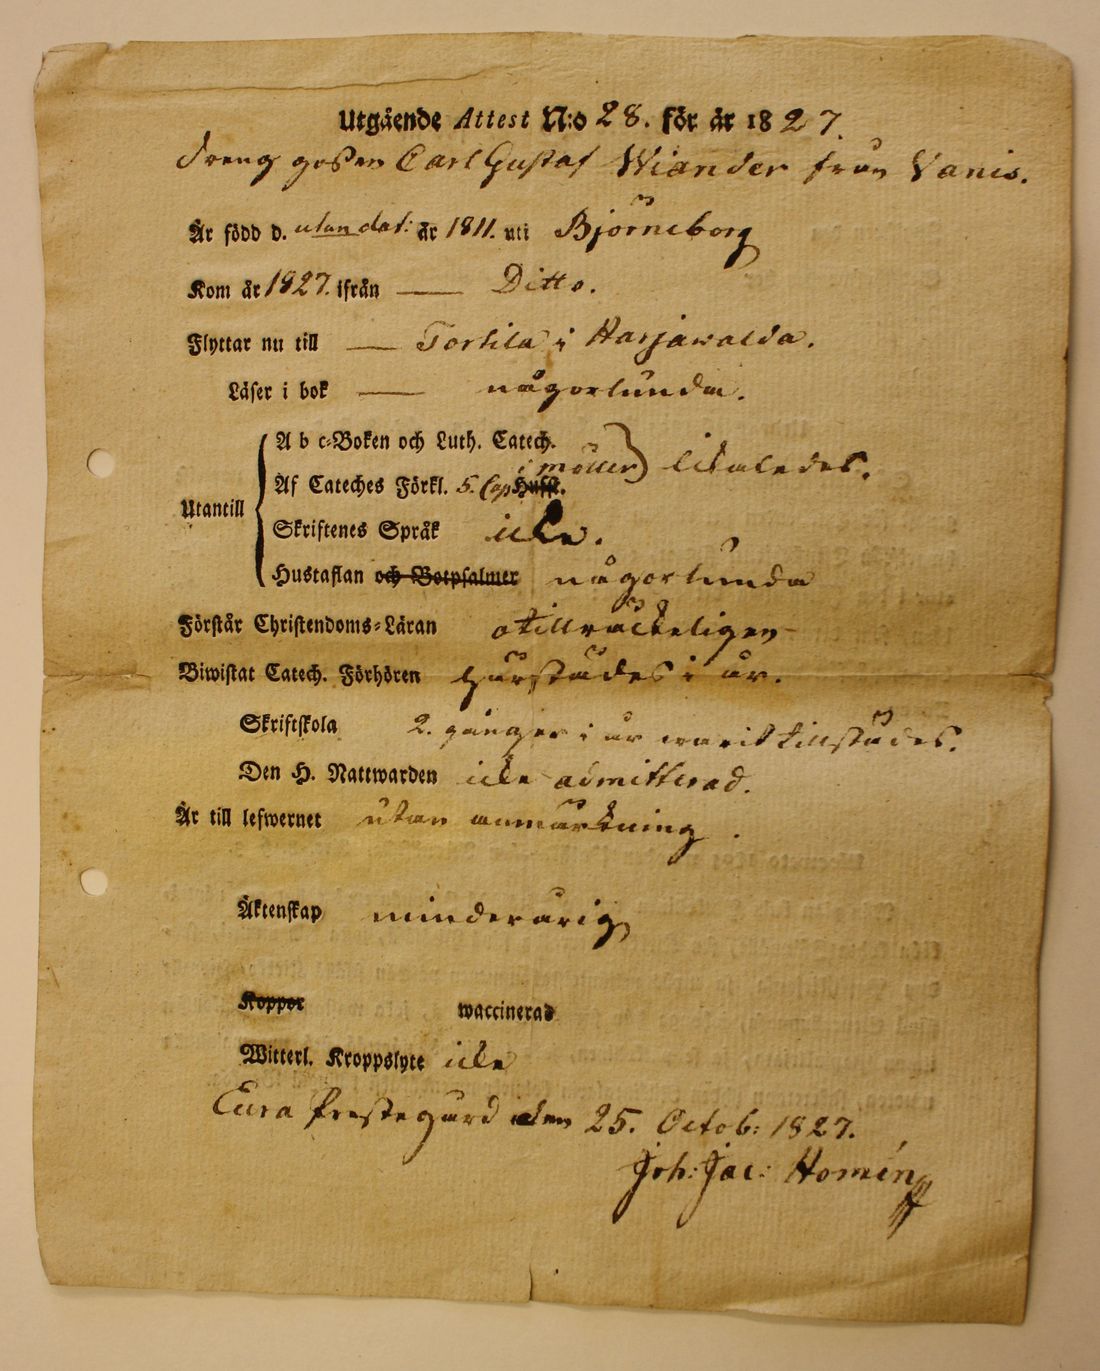 Utgående Attest N:o 28. för år 1827.
Dreng gossen Carl Gustaf Wiander från Vanis.
Är född d. utan dat: år 1811. uti Björneborg
Kom år 1827. ifrån — Ditto.
Flyttar nu till — Torttila i Harjawalda.
Läser i bok — någorlunda.
Utantill
A b c-Boken och Luth. Catech.
Af Cateches Förkl. 5. Cap Hufft. i möller) likaledes.
Skriftenes Språk icke.
Hustaflan och Botpsalmer någorlunda
Förstår Christendoms-Läran otillräckeligen
Biwistat Catech. Förhören härstädes i år.
Skriftskola 2. gånger i år warit tillstädes.
Den H. Nattwarden icke admitterad.
Är till lefwernet utan anmärkning.
Äktenskap minderårig
Koppor waccinerad
Witterl. Kroppslyte icke
Eura Prestegård den 25. Octob: 1827.
Joh: Jac: Homén